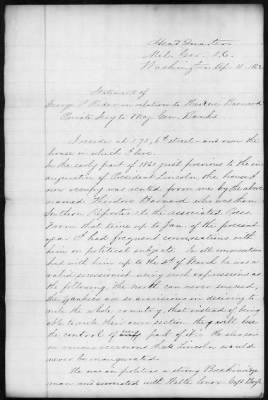 Head Quarters
Washington, Apl 11, 1862
Statement of
George S. in relation to Theodore Barnard
Private Secy to Maj. Gen. Banks
I reside at 179, 6th street and own the
house in which I live.
In the early part of 1861 just previous to the in-
auguration of President Lincoln, the house I
now occupy was rented from me by the above
named Theodore Barnard who was then
Southern Reporter to the associated Press
From that time up to Jan. of the present
year I had frequent conversations with
him on political subjects. In all conversations
had with him up to the 4th of March he was a
rabid secessionist using such expressions as
the following. The north can never succeed,
the Yankees are so avaricious in desiring to
rule the whole country, that instead of being
able to rule their own section they will lose
the control of part of it. He also on
various occasions that Lincoln would
never be inaugurated.
He was in politics a strong Breckinridge
man and associated with